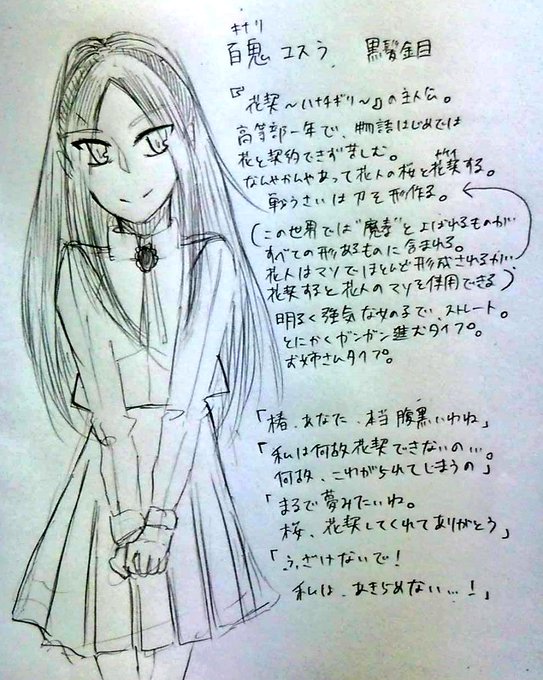 キナリ
百鬼 コスラ 黒髪金目
『花契〜ハナチギリ〜』の主人公。
高等部一年で、物語はじめでは
花と契約できずましむ。
なんやかんやあって花人の桜と花契する。
戦うさいは刀を形作る。
(この世界では"魔素"とよばれるものが
すべての形あるものに含まれる。
花人はマソでほとんど形成されるが、
花契すると花人のマソを使用できる)
明るく強気な女の子で、ストレート。
とにかくガンガン進むタイプ。
お姉さんタイプ。
「椿、あなた、本当腹黒いわね」
「私は何故花契できないの…。
何故、これが られてしまうの」
「まるで夢みたいね。
桜、花契してくれてありがとう」
「ふざけないで!
私は、あきらめない…!」